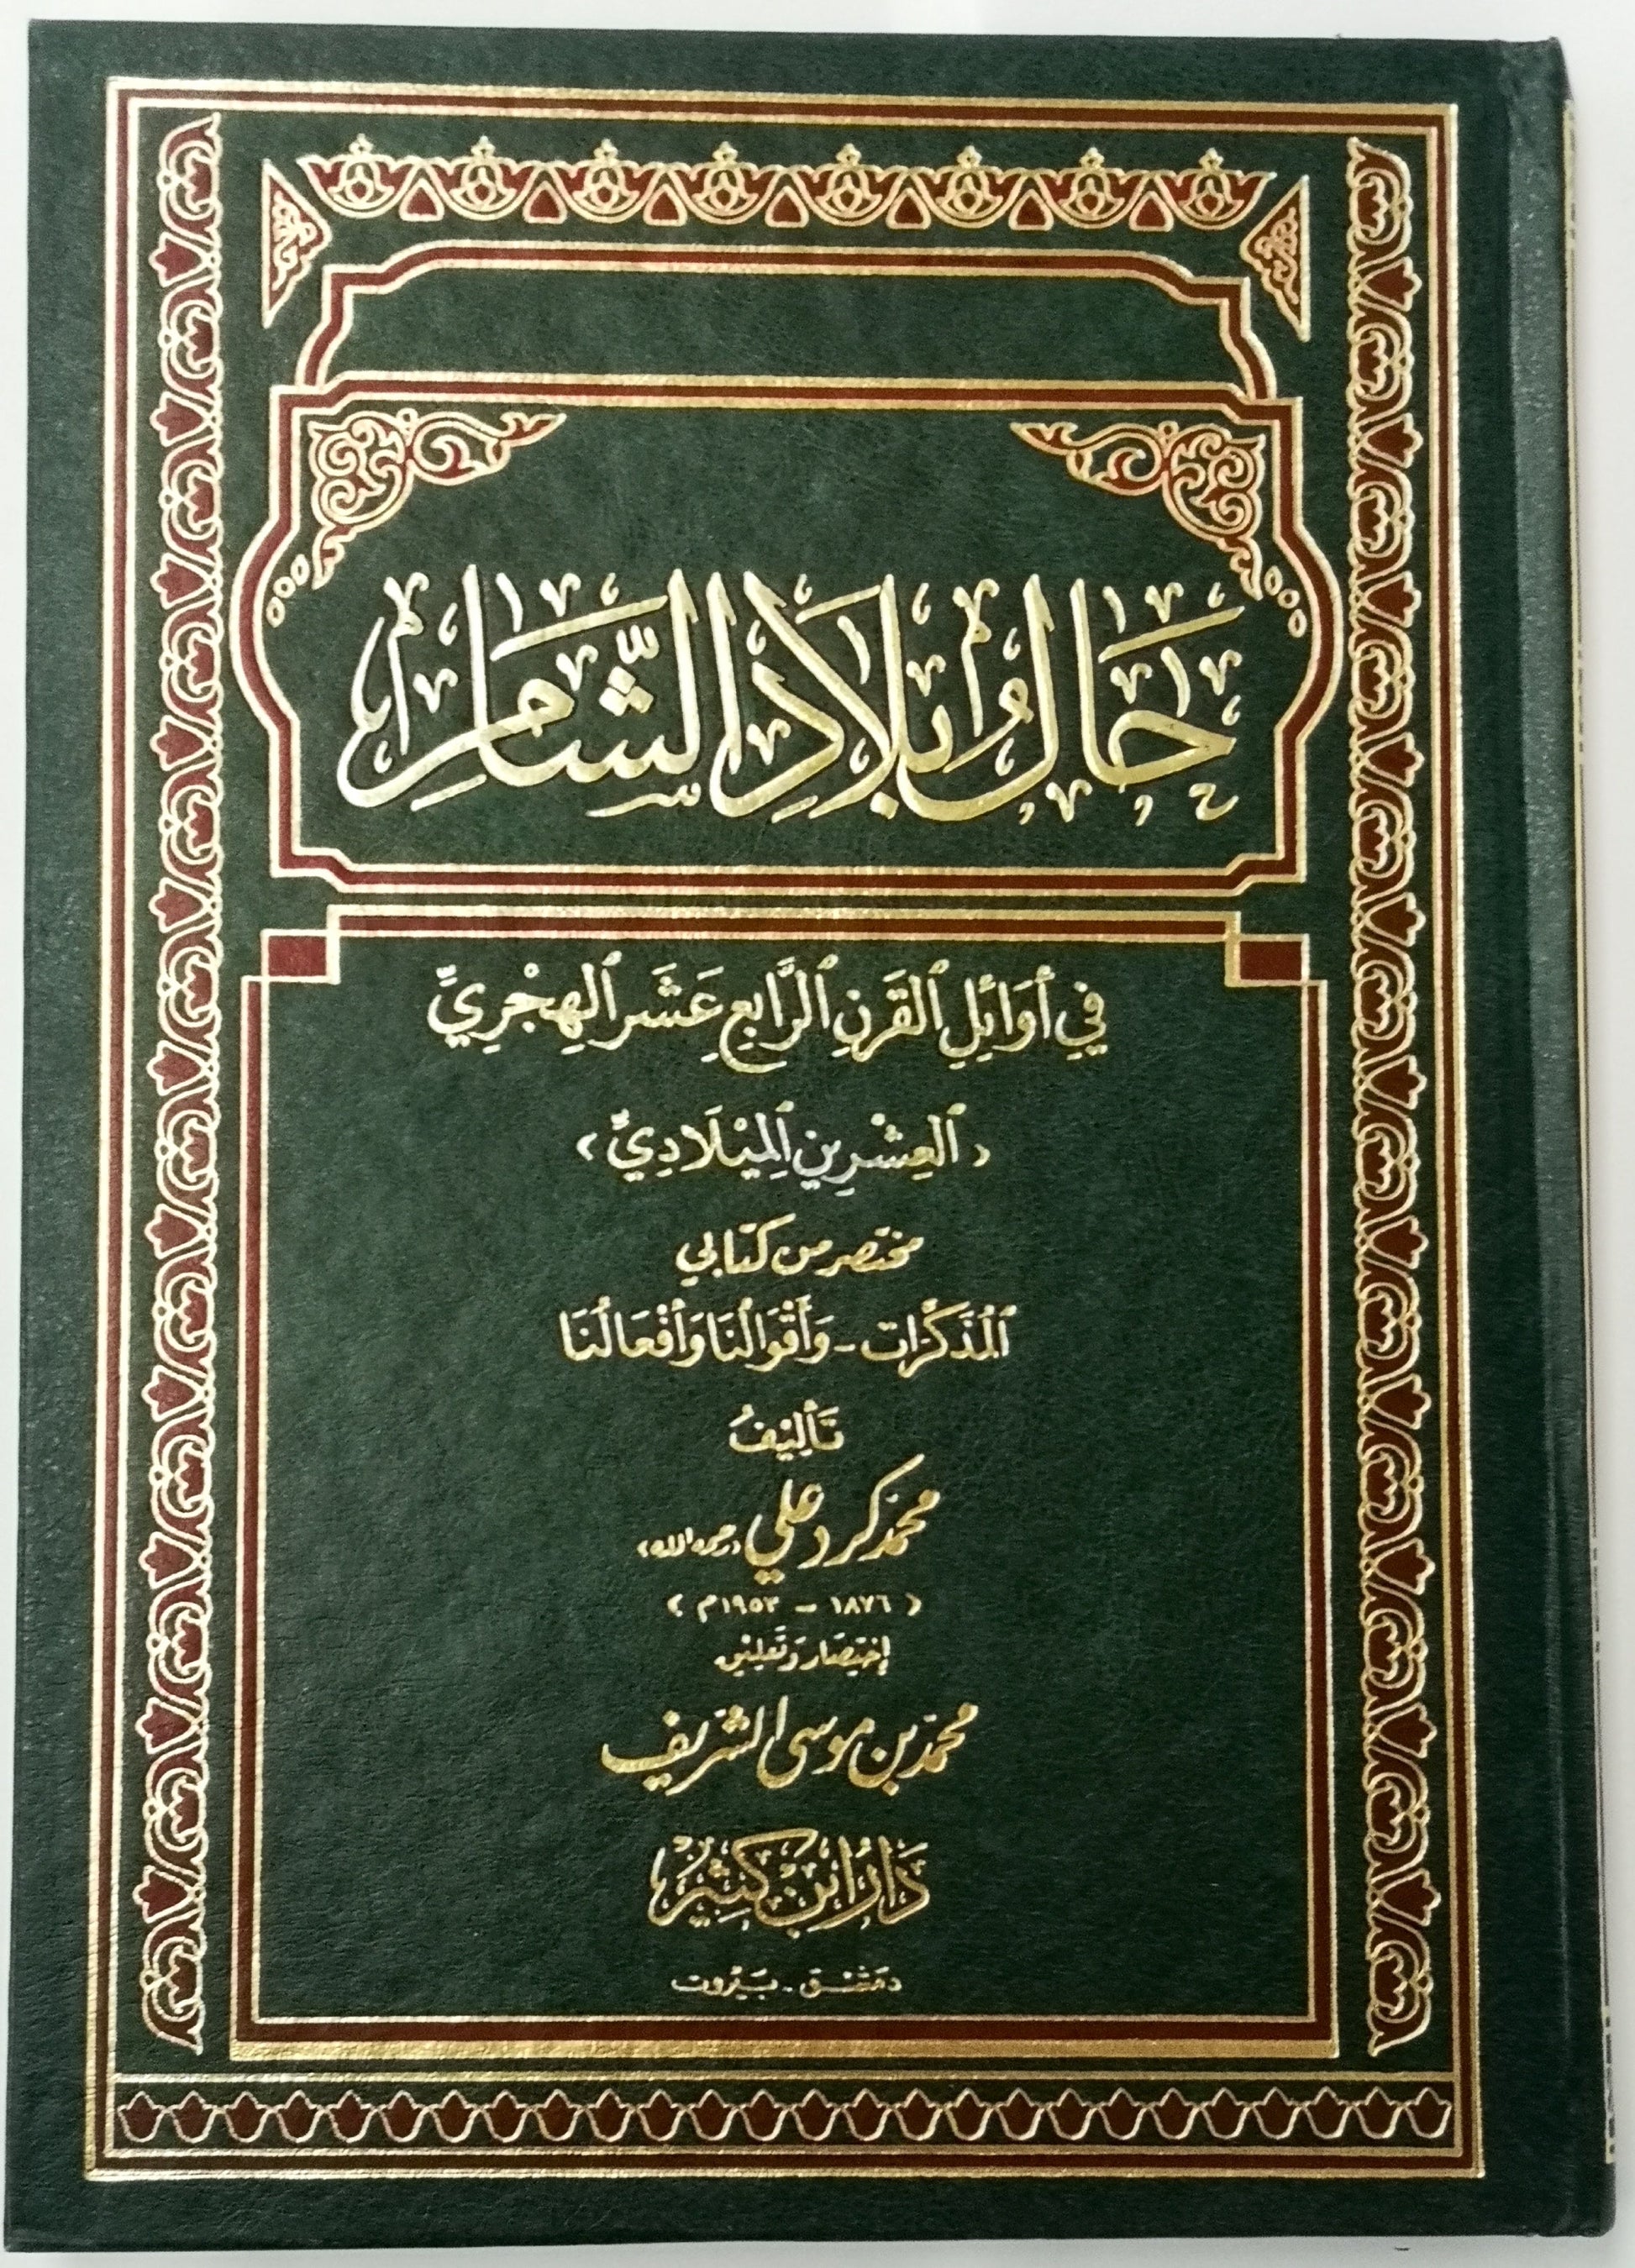 حَالُ بِلَادِ الشَّامِ
فِي أَوَائِلِ ٱلْقَرْنِ ٱلرَّابِعِ عَشَرَ ٱلْهِجْرِيِّ
﴿ ٱلْعِشْرِينَ ٱلْمِيْلَادِيِّ ﴾
مختصر من كتابي
ٱلْمُذَكَّرَات - وَأَقْوَالُنَا وَأَفْعَالُنَا
تَأْلِيْفُ
محمّد كرد علي (رحمه الله)
( ١٨٧٦ - ١٩٥٣م )
إختِصَار وَتَعليْق
محمّد بن موسى الشريف
دَارُ ابْنِ كَثِيْرٍ
دمَشْق - بَيْروت